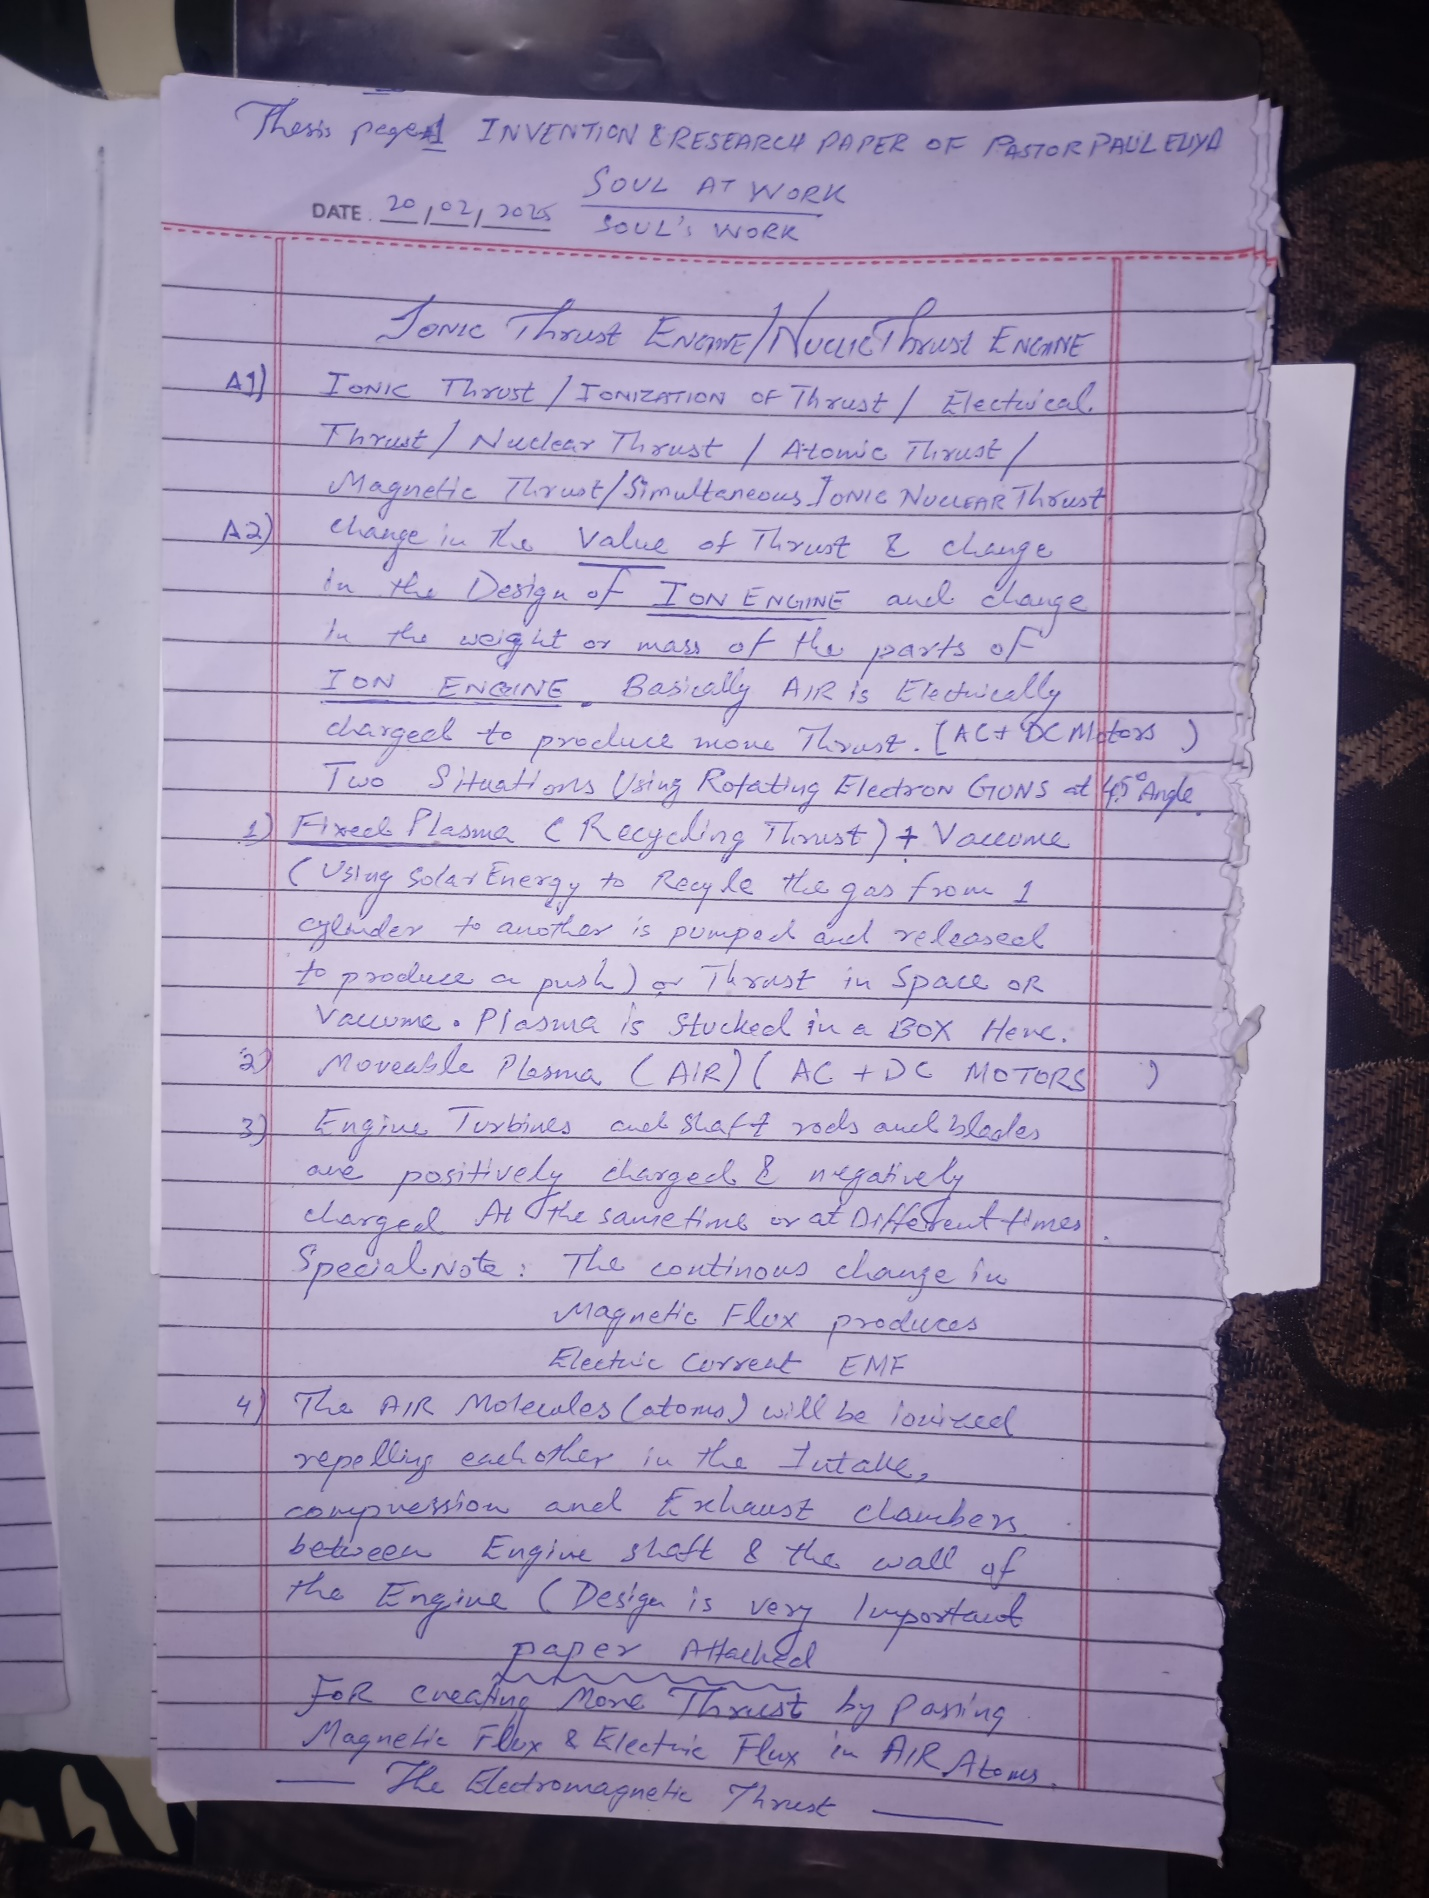 Thesis page 1 INVENTION & RESEARCH PAPER OF PASTOR PAUL ELIYA
SOUL AT WORK
DATE 20/02/2025
SOUL'S WORK
IONIC Thrust ENGINE/NUCLIC Thrust ENGINE
A1) IONIC Thrust / IONIZATION OF Thrust / Electrical
Thrust / Nuclear Thrust / Atomic Thrust /
Magnetic Thrust/Simultaneous IONIC NUCLEAR Thrust
A2) change in the Value of Thrust & change
in the Design of ION ENGINE and change
in the weight or mass of the parts of
ION ENGINE. Basically AIR is Electrically
charged to produce more Thrust. (AC+DC Motors )
Two Situations Using Rotating Electron GUNS at 45° Angle.
1) Fixed Plasma ( Recycling Thrust) + Vaccume
(Using Solar Energy to Recyle the gas from 1
cylinder to another is pumped and released
to produce a push) or Thrust in Space OR
Vaccume. Plasma is Stucked in a BOX Here.
2) Moveable Plasma (AIR) ( AC + DC MOTORS )
3) Engine Turbines and Shaft rods and blades
are positively charged & negatively
charged At the same time or at Different times.
Special Note: The continous change in
Magnetic Flux produces
Electric Current EMF
4) The AIR Molecules (atoms) will be ionized
repelling eachother in the Intake,
compression and Exhaust chambers
between Engine shaft & the wall of
the Engine (Design is very Important
paper Attached
FOR creating More Thrust by passing
Magnetic Flux & Electric Flux in AIR Atoms.
— The Electromagnetic Thrust —